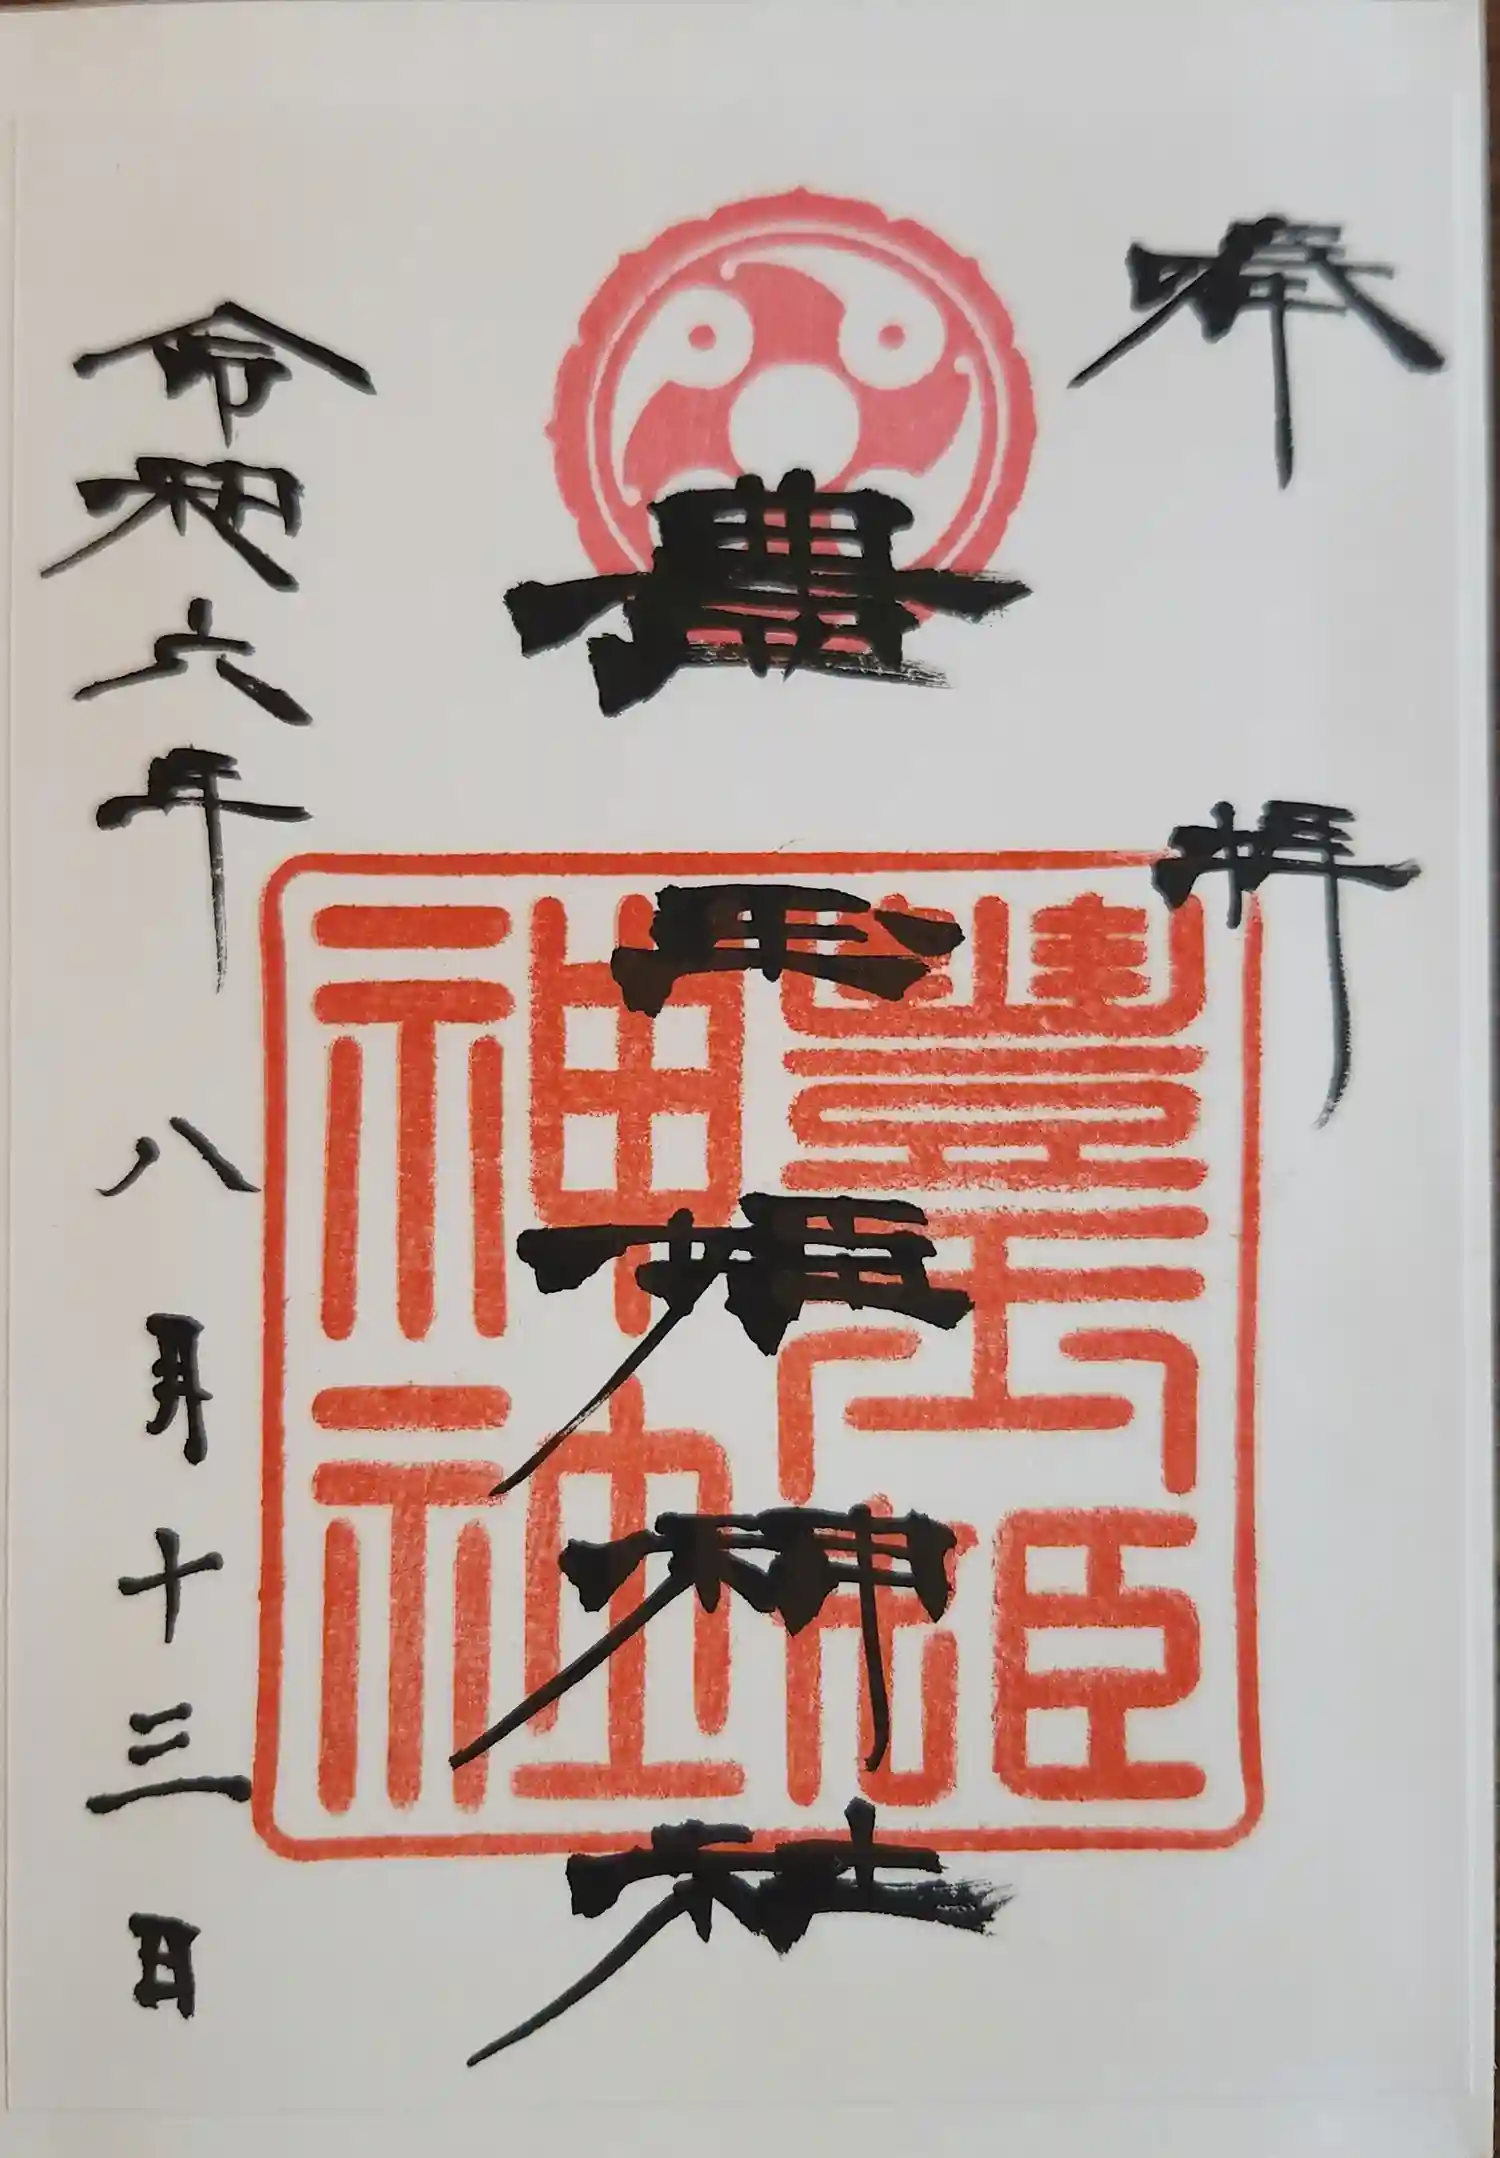 奉拝
豊玉姫神社
豊玉姫
神社
令和六年八月十三日